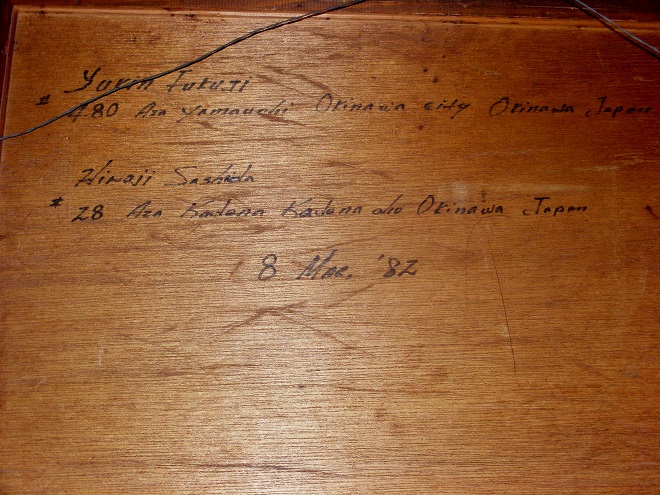 Yukin Fukuji
# 480 Aza Yamauchi Okinawa city Okinawa Japan
Hiroji Sashida
# 28 Aza Kadena Kadena cho Okinawa Japan
8 Mar. '82